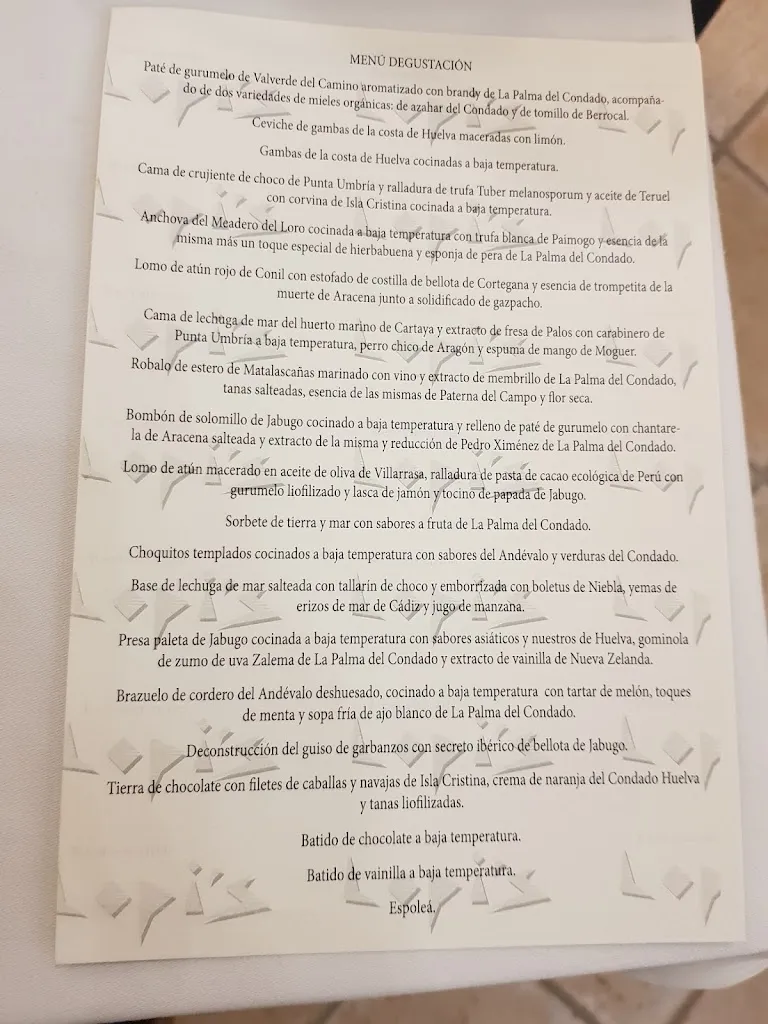 MENÚ DEGUSTACIÓN
Paté de gurumelo de Valverde del Camino aromatizado con brandy de La Palma del Condado, acompaña-
do de dos variedades de mieles orgánicas: de azahar del Condado y de tomillo de Berrocal.
Ceviche de gambas de la costa de Huelva maceradas con limón.
Gambas de la costa de Huelva cocinadas a baja temperatura.
Cama de crujiente de choco de Punta Umbría y ralladura de trufa Tuber melanosporum y aceite de Teruel
con corvina de Isla Cristina cocinada a baja temperatura.
Anchova del Meadero del Loro cocinada a baja temperatura con trufa blanca de Paimogo y esencia de la
misma más un toque especial de hierbabuena y esponja de pera de La Palma del Condado.
Lomo de atún rojo de Conil con estofado de costilla de bellota de Cortegana y esencia de trompetita de la
muerte de Aracena junto a solidificado de gazpacho.
Cama de lechuga de mar del huerto marino de Cartaya y extracto de fresa de Palos con carabinero de
Punta Umbría a baja temperatura, perro chico de Aragón y espuma de mango de Moguer.
Robalo de estero de Matalascañas marinado con vino y extracto de membrillo de La Palma del Condado,
tanas salteadas, esencia de las mismas de Paterna del Campo y flor seca.
Bombón de solomillo de Jabugo cocinado a baja temperatura y relleno de paté de gurumelo con chantare-
la de Aracena salteada y extracto de la misma y reducción de Pedro Ximénez de La Palma del Condado.
Lomo de atún macerado en aceite de oliva de Villarrasa, ralladura de pasta de cacao ecológica de Perú con
gurumelo liofilizado y lasca de jamón y tocino de papada de Jabugo.
Sorbete de tierra y mar con sabores a fruta de La Palma del Condado.
Choquitos templados cocinados a baja temperatura con sabores del Andévalo y verduras del Condado.
Base de lechuga de mar salteada con tallarín de choco y emborrizada con boletus de Niebla, yemas de
erizos de mar de Cádiz y jugo de manzana.
Presa paleta de Jabugo cocinada a baja temperatura con sabores asiáticos y nuestros de Huelva, gominola
de zumo de uva Zalema de La Palma del Condado y extracto de vainilla de Nueva Zelanda.
Brazuelo de cordero del Andévalo deshuesado, cocinado a baja temperatura con tartar de melón, toques
de menta y sopa fría de ajo blanco de La Palma del Condado.
Deconstrucción del guiso de garbanzos con secreto ibérico de bellota de Jabugo.
Tierra de chocolate con filetes de caballas y navajas de Isla Cristina, crema de naranja del Condado Huelva
y tanas liofilizadas.
Batido de chocolate a baja temperatura.
Batido de vainilla a baja temperatura.
Espoleá.